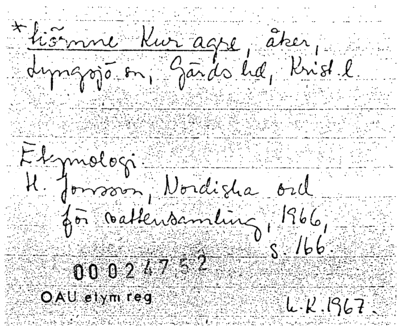 * Hiörnne Kur agre, åker,
Lyngsjö sn, Gärds hd, Krist. l.
Etymologi.
H. Jonsson, Nordiska ord
för vattensamling, 1966,
s. 166.
00024752
OAU etym reg
L.K. 1967.